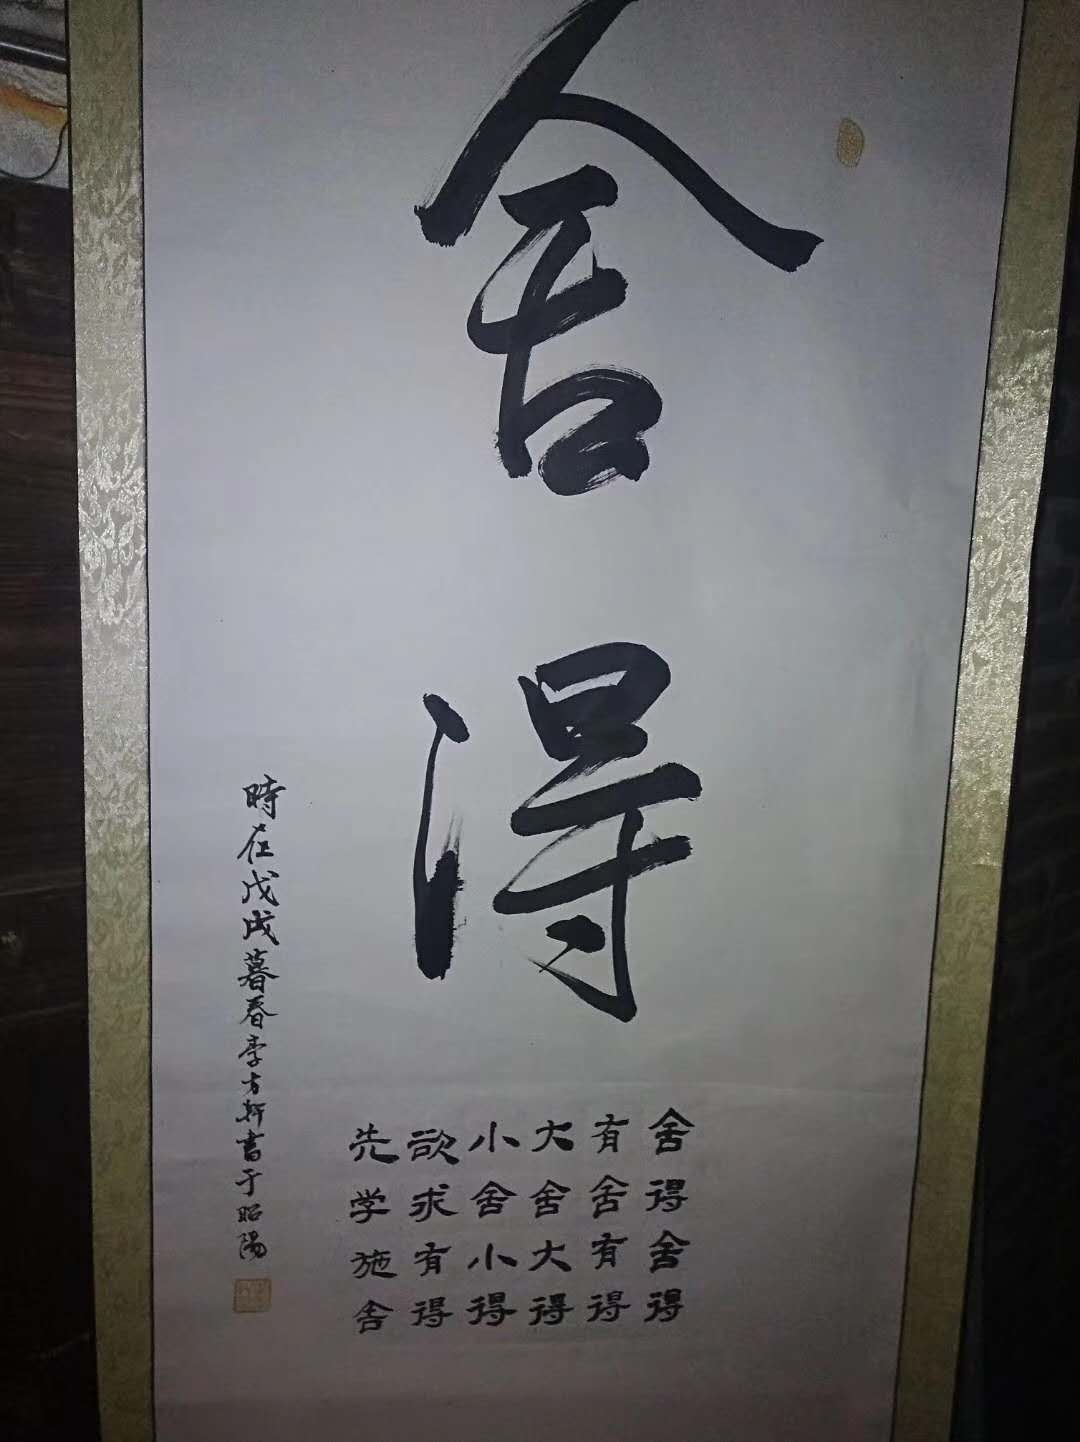 舍得
舍得舍得
有舍有得
大舍大得
小舍小得
欲求有得
先学施舍
時在戊戌暮春李方軒書于昭陽